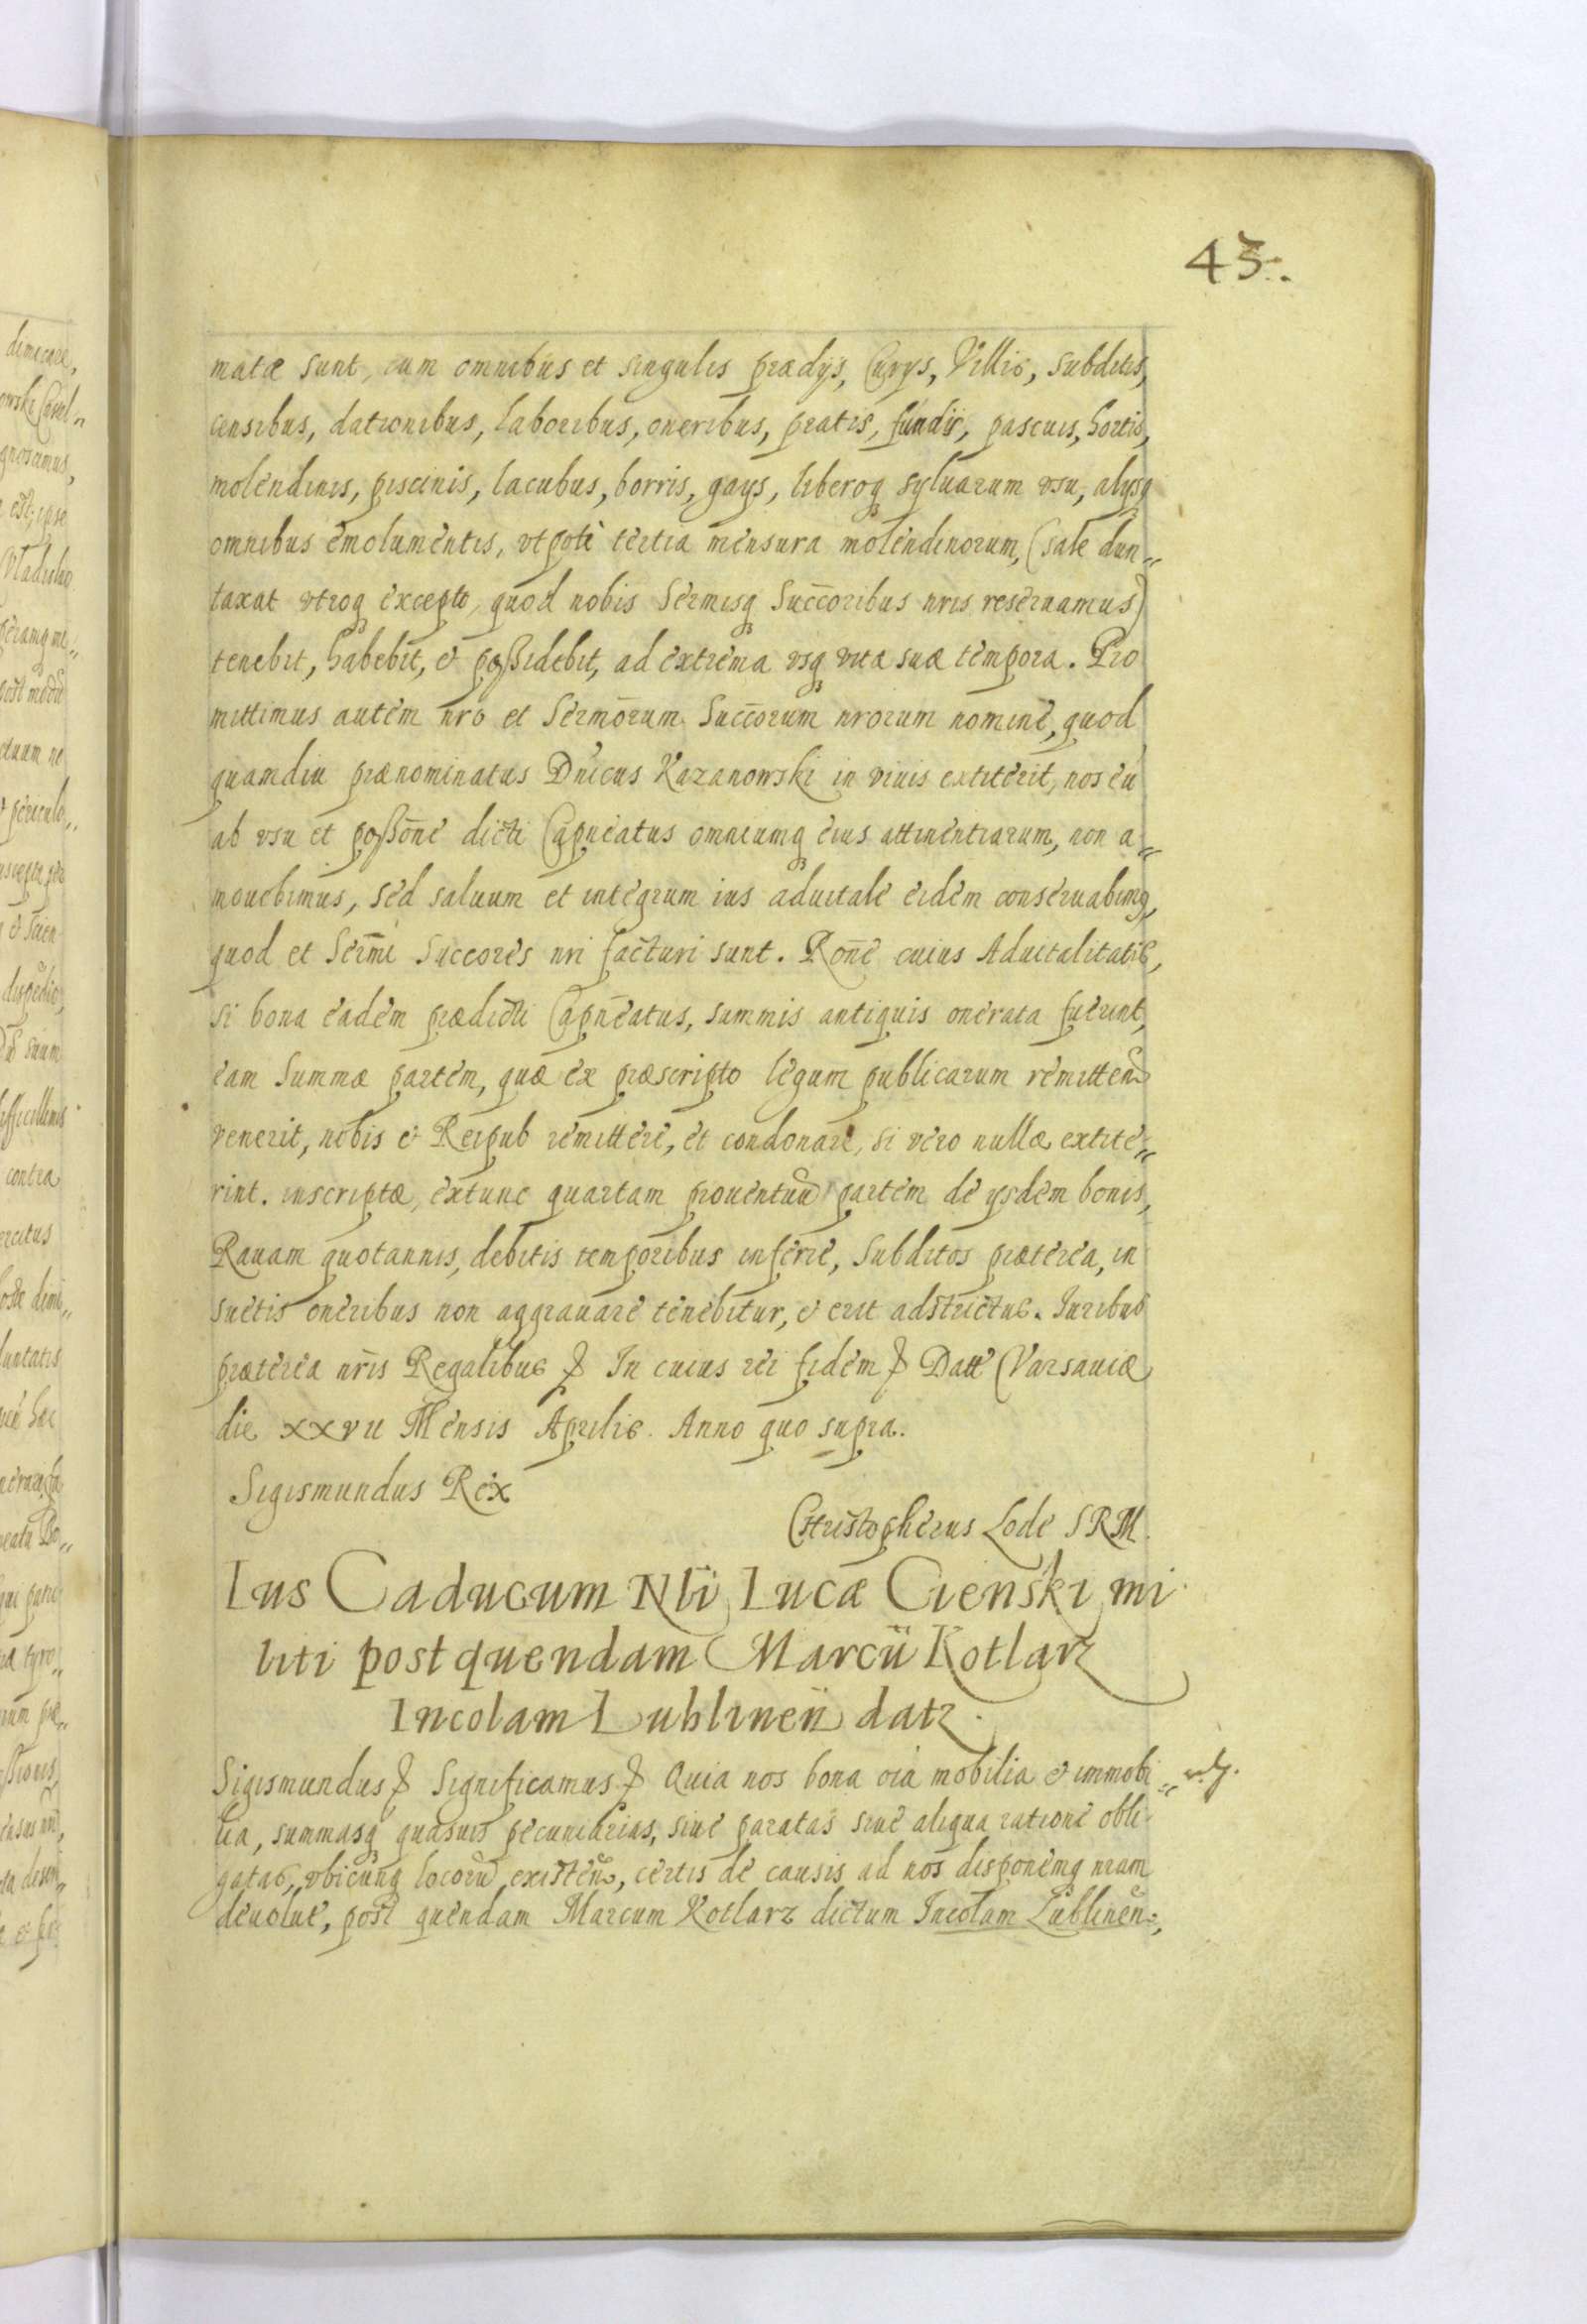 43.
matæ sunt, cum omnibus et singulis prædijs, Curijs, Villis, subditis,
censibus, dationibus, laboribus, oneribus, pratis, fundis, pascuis, hortis,
molendinis, piscinis, lacubus, borris, gays, liberoq sylvarum vsu, alysq
omnibus emolumentis, vtpote tertia mensura molendinorum, (sale dun„
taxat vtroq excepto, quod nobis Sermisq Succoribus nris reseruamus)
tenebit, habebit, & possidebit, ad extrema vsq vitæ suæ tempora. Pro
mittimus autem nro et Sermorum Succorum nrorum nomine, quod
quamdiu prænominatus Dnicus Kazanowski in viuis extiterit, nos eu
ab vsu et possone dicti Capneatus omniumq eius attinentiarum, non a„
mouebimus, sed saluum et integrum ius aduitale eidem conseruabimq,
quod et Sermi Succores nri facturi sunt. Rone cuius Aduitalitatis,
si bona eadem prædicti Capneatus, summis antiquis onerata fuerint,
eam Summæ partem, quæ ex præscripto legum publicarum remitten
venerit, nobis & Reipub remittere, et condonare, si vero nullæ extite„
rint. inscriptæ, extunc quartam prouentuu partem de ysdem bonis,
Rauam quotannis, debitis temporibus inferre, Subditos præterea, in
suetis oneribus non aggrauare tenebitur, & erit adstrictus. Iuribus
præterea nris Regalibus & In cuius rei fidem & Datt Varsauiæ
die xxvii Mensis Aprilis. Anno quo supra.
Sigismundus Rex
Christopherus Lode SRM.
Ius Caducum Nbi Lucæ Cienski mi
liti post quendam Marcū Kotlarz
Incolam Lublinen datz.
Sigismundus & Significamus & Quia nos bona oia mobilia & immobi„
lia, summasq quasuis pecuniarias, siue paratas siue aliqua ratione obli
gatas, vbicunq locorū existen, certis de causis ad nos disponemq nram
deuolut, post quendam Marcum Kotlarz dictum Incolam Lublinen,